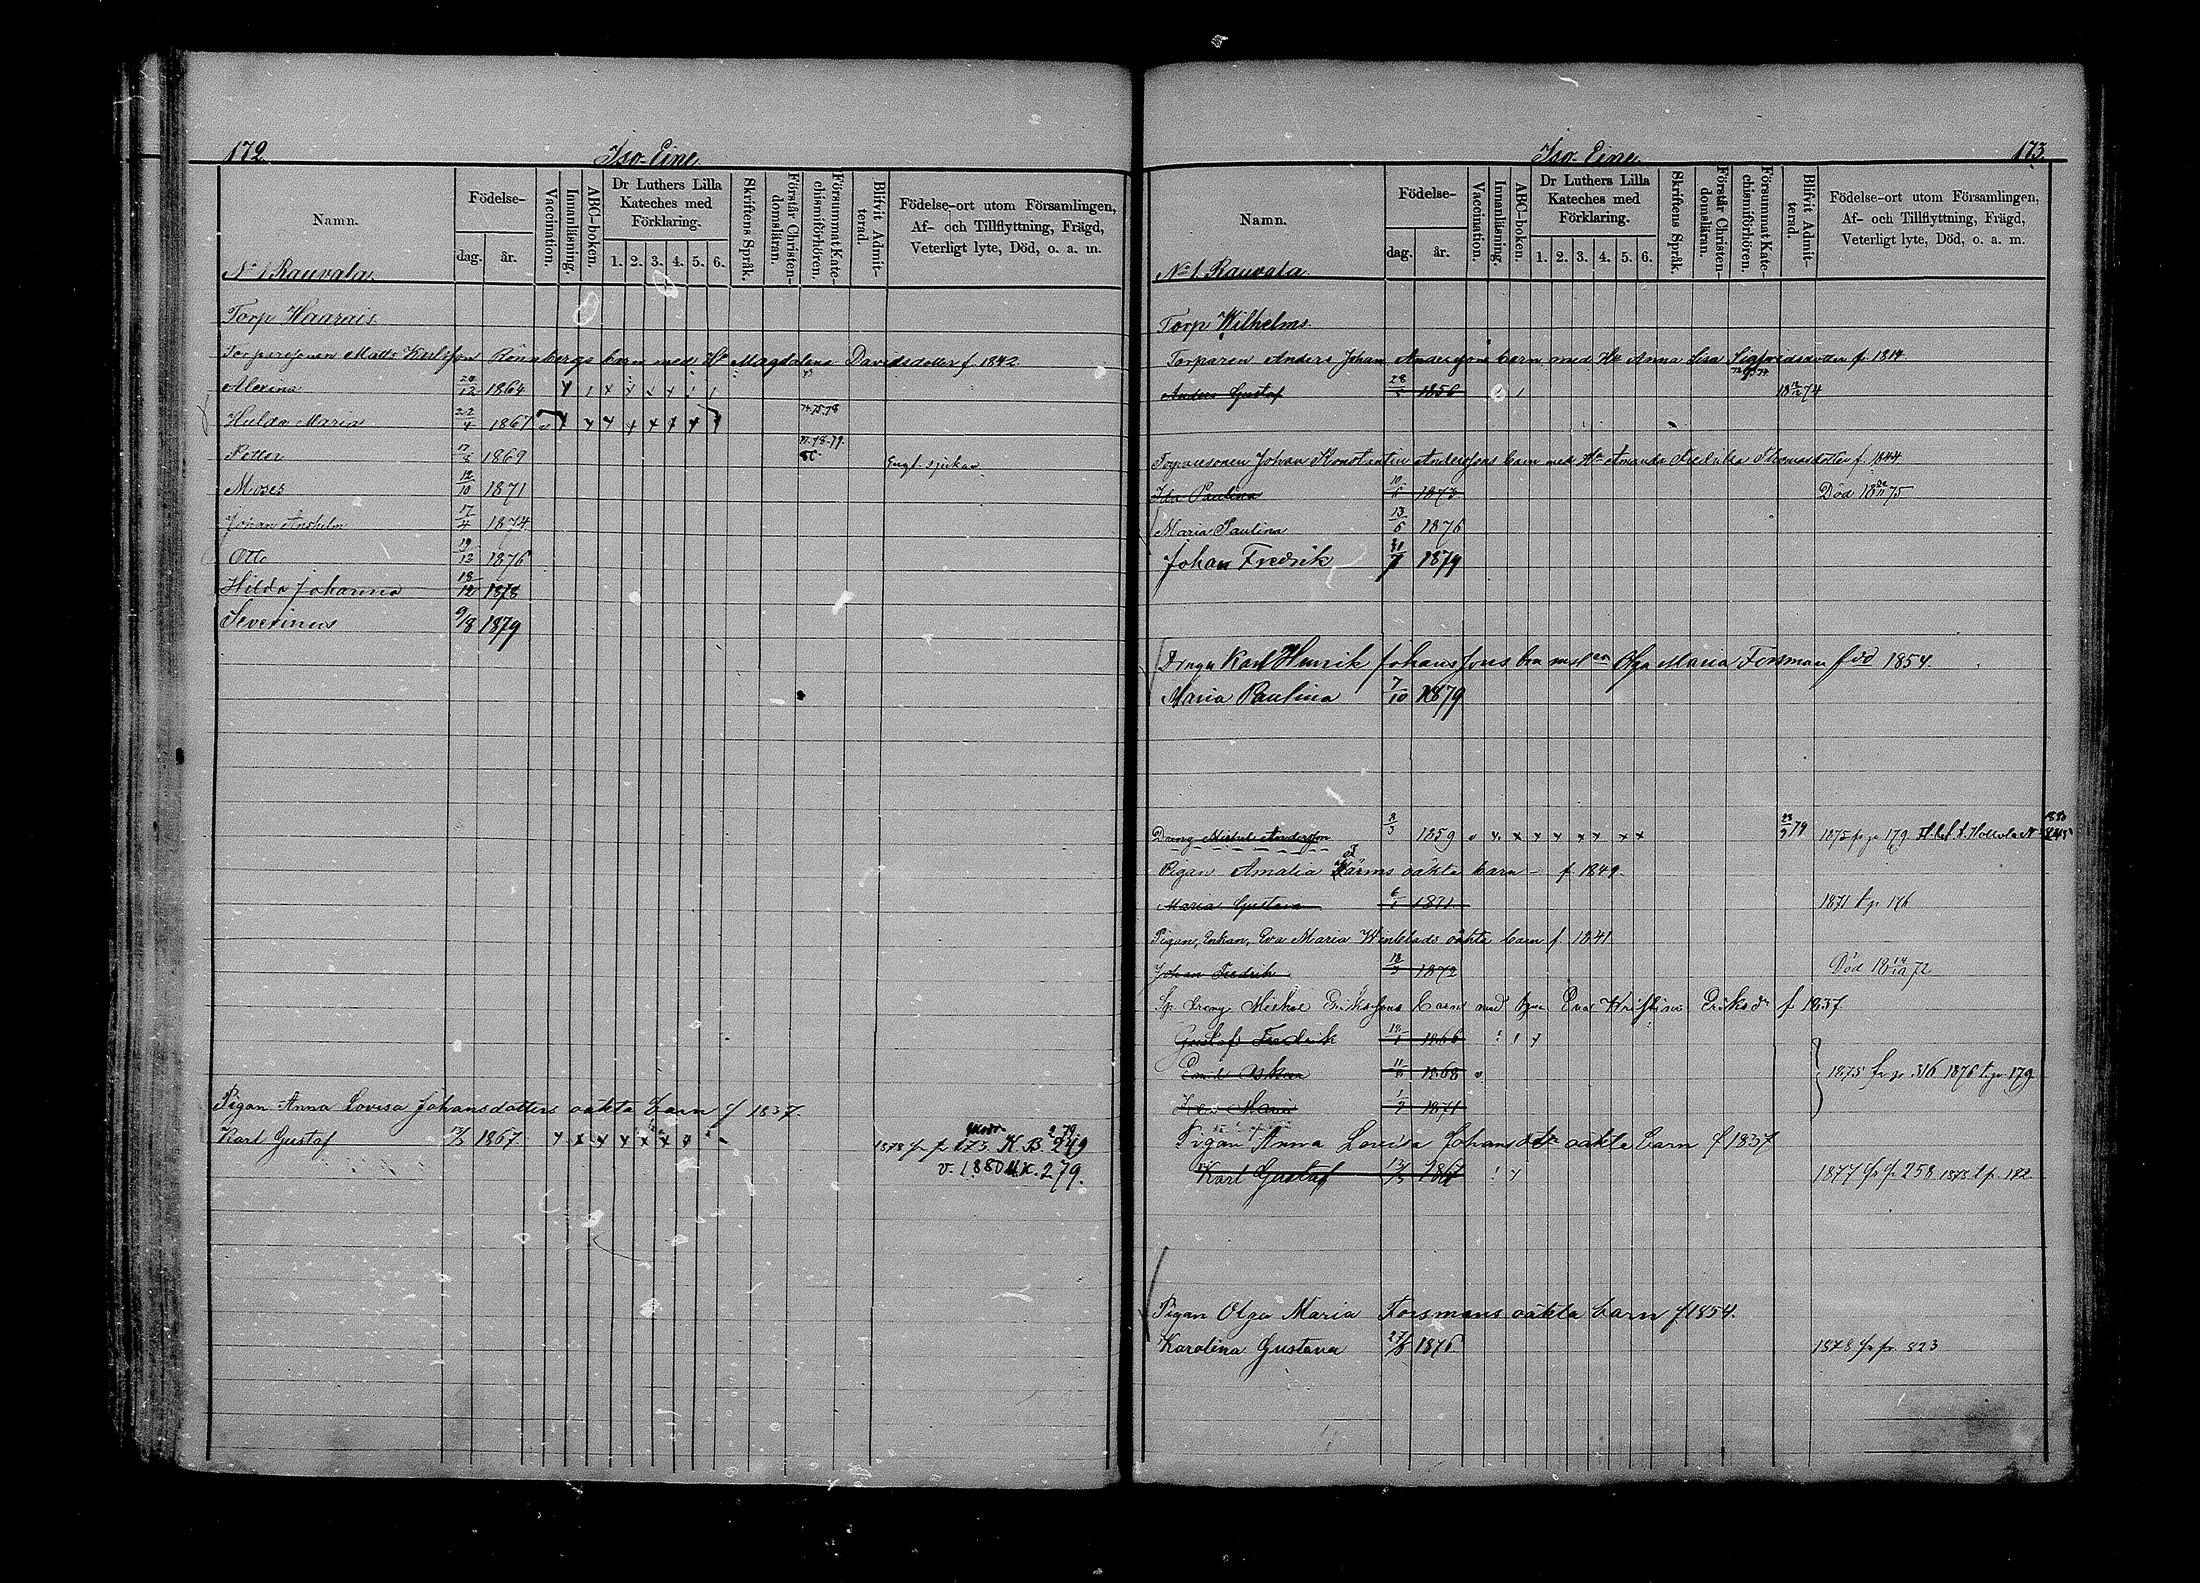 172.
Iso-Eine.
Namn.
Födelse-
dag.
år.
Vaccination.
Innanläsning.
ABC-boken.
Dr Luthers Lilla Kateches med Förklaring.
1. 2. 3. 4. 5. 6.
Skriftens Språk.
Förstår Christendomsläran.
Försummat Katechismiförhören.
Blifvit Admitterad.
Födelse-ort utom Församlingen, Af- och Tillflyttning, Frägd, Veterligt lyte, Död, o. a. m.
No 1. Rauvala.
Torp Haarais
Torparesonen Matts Karlsson Rönnbergs barn med Hu Magdalena Davidsdotter f. 1842.
Alexina 20/12 1864
Hulda Maria 22/4 1867 74.75.78
Petter 17/8 1869 77.78.79. Engl. sjukan
Moses 12/10 1871
Johan Anshelm 17/4 1874
Otto 19/12 1876
Hilda Johanna 18/12 1878
Severinus 9/8 1879
Pigan Anna Lovisa Johansdotters oäkta barn f 1837.
Karl Gustaf 13/5 1867 1878 fr p 173. K.B. 249
v. 1880 U.K. 279.
173.
Iso-Eine.
Namn.
Födelse-
dag.
år.
Vaccination.
Innanläsning.
ABC-boken.
Dr Luthers Lilla Kateches med Förklaring.
1. 2. 3. 4. 5. 6.
Skriftens Språk.
Förstår Christendomsläran.
Försummat Katechismiförhören.
Blifvit Admitterad.
Födelse-ort utom Församlingen, Af- och Tillflyttning, Frägd, Veterligt lyte, Död, o. a. m.
No 1. Rauvala
Torp Wilhelms.
Torparen Anders Johan Anderssons barn med Hu Anna Lisa Sigfredsdotter f. 1814.
Anders Gustaf 1856
Torparesonen Johan Konstantin Anderssons barn med Hu Amanda Fredrika Thomasdotter f. 1844.
Ida Paulina 1873 Död 75
Maria Paulina 13/6 1876
Johan Fredrik 31/7 1879
Dräng Karl Henrik Johanssons brn med Olga Maria Forsman född 1854.
Maria Paulina 7/10 1879
Dräng Mickel Andersson 8/3 1859 1875 fr p 179
Pigan Amalia Färms oäkta barn f 1849.
Maria Gustava 1871 1871 t p 176
Pigan, Enkan, Eva Maria Winblads oäkta barn f 1841
Johan Fredrik 1872 Död 18 14/10 72
Sp. dreng Mickel Erikssons barn med Hu Eva Kristina Eriksdr f 1837
Gustaf Fredrik 1866
Emil Oskar 1868 1875 fr p. 316 1876 t p. 179
Ida Maria 1/2 1871
Pigan Anna Lovisa Johansdtr oäkta barn f 1837
Karl Gustaf 13/5 1867 1877 fr p 258 1878 t p. 172
Pigan Olga Maria Forsmans oäkta barn f 1854.
Karolina Gustava 27/8 1876. 1878 fr p. 323